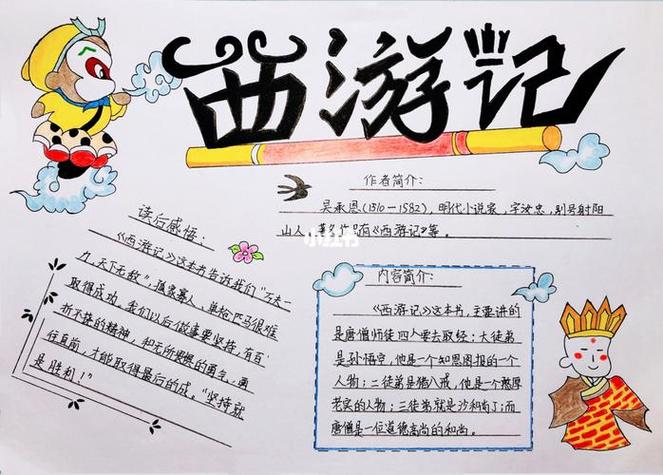 西游记
作者简介:
吴承恩(1510-1582),明代小说家,字汝忠,别号射阳
山人,著名作品有《西游记》等。
读后感悟:
《西游记》这本书告诉我们"万夫一
九,天下无敌",孤家寡人,单枪匹马很难
取得成功。我们以后做事要坚持,有百
折不挠的精神,和无所畏惧的勇气,勇
往直前,才能取得最后的成。"坚持就
是胜利!"
内容简介:
《西游记》这本书,主要讲的
是唐僧师徒四人要去取经:大徒弟
是孙悟空,他是一个知恩图报的一个
人物;二徒弟是猪八戒,他是一个憨厚
老实的人物;三徒弟就是沙和尚了;而
唐僧是一位道德高尚的和尚。
小红书